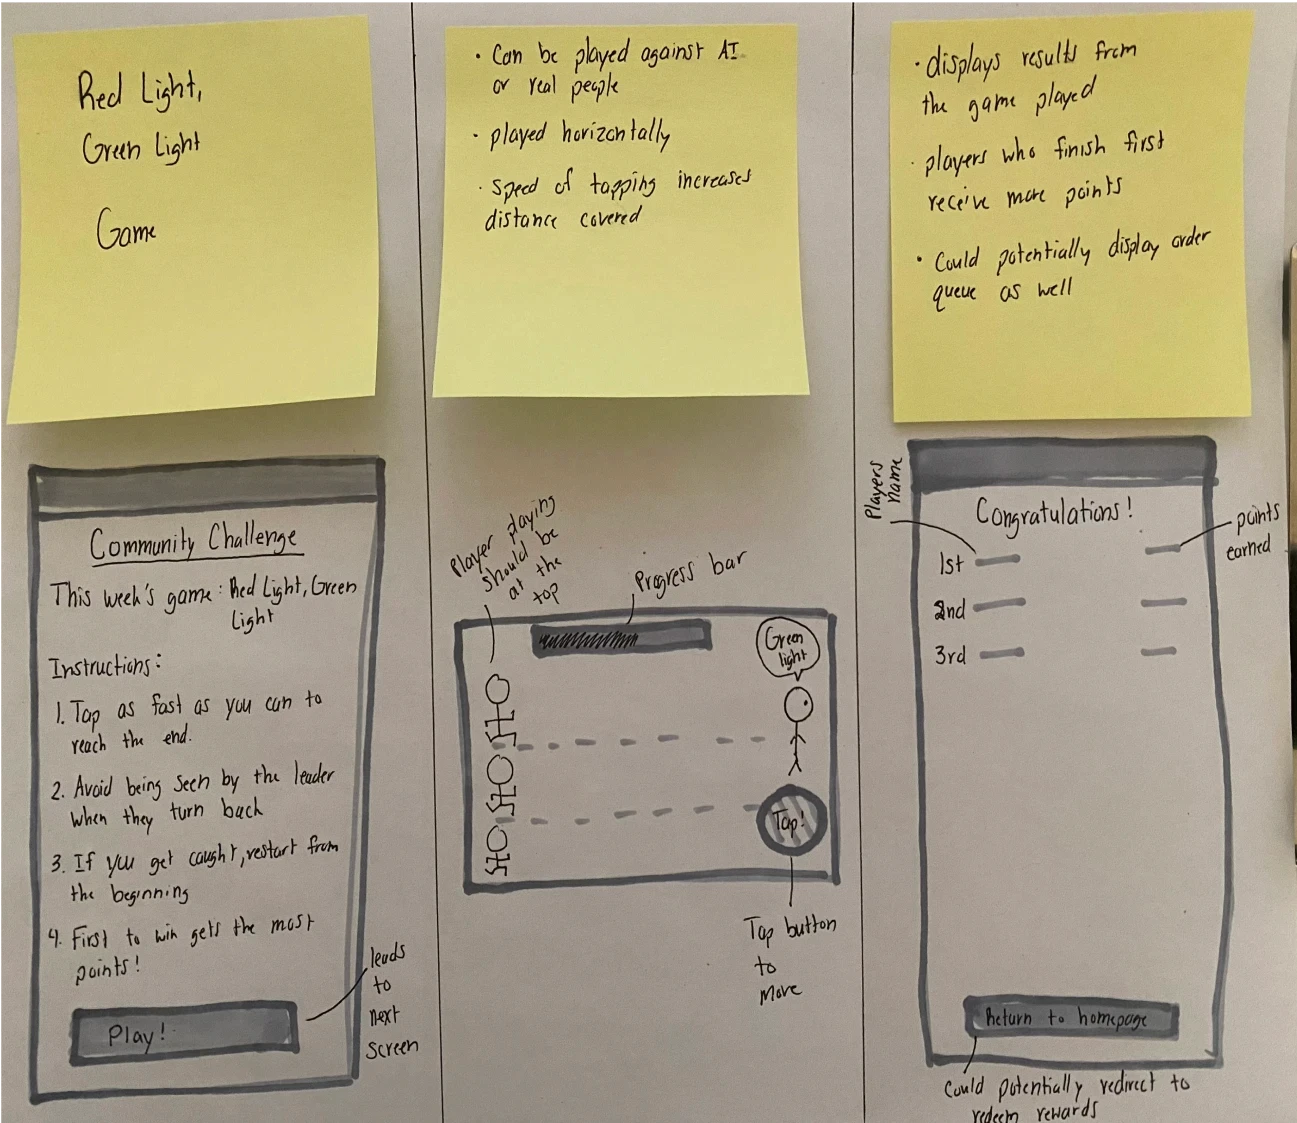 Red Light,
Green Light
Game
Community Challenge
This week's game: Red Light, Green
Light
Instructions:
1. Tap as fast as you can to
reach the end.
2. Avoid being seen by the leader
when they turn back
3. If you get caught, restart from
the beginning
4. First to win gets the most
points!
Play!
leads
to
next
screen
• Can be played against AI
or real people
• played horizontally
• Speed of tapping increases
distance covered
Player playing
should be
at the
top
Progress bar
Green
light
Tap!
Tap button
to
move
• displays results from
the game played
• players who finish first
receive more points
• Could potentially display order
queue as well
Players
name
Congratulations!
points
earned
1st
2nd
3rd
Return to homepage
Could potentially redirect to
redeem rewards